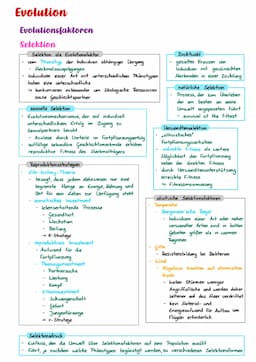 Evolution
Evolutionsfaktoren
Selektion
Selektion als Evolutionsfaktor
- vom Phänotyp der Individuen abhängiger Vorgang
→ Merkmalsausprägungen
- Individuen einer Art mit unterschiedlichen Phänotypen haben eine unterschiedliche
→ konkurrieren zum um ökologische Ressourcen sowie Geschlechtspartner
sexuelle Selektion
- Evolutionsmechanismus, der auf individuell
unterschiedlichem Erfolg im Zugang zu
Sexualpartnern beruht
- Auslese durch Vorteile im Fortpflanzungserfolg
reproduktive Fitness des Merkmalsträgers
Reproduktionsstrategien
Life-history-Theorie
- besagt, dass jedem Individuum nur eine
begrenzte Menge an Energie, Nahrung und
Zeit für sein Leben zur Verfügung steht
- somatisches Investment
lebenserhaltende Prozesse
Gesundheit
Wachstum
Reifung
→ K-Stratege
- reproduktives Investment
Aufwand für die
Fortpflanzung
Paarungsaufwand
Partnersuche
Werbung
Kampf
Elterninvestment
Schwangerschaft
Geburt
Jungenfürsorge
→ r-Stratege
Zuchtwahl
- gezieltes Kreuzen von
Individuen mit gewünschten
Merkmalen in einer Züchtung
natürliche Selektion
- Prozess, der zum Überleben
der am besten an seine
Umwelt angepassten führt
→ survival of the fittest
Verwandtenselektion
Fortpflanzungsverhalten
- indirekte Fitness als weitere
Möglichkeit der Fortpflanzung
neben der direkten Fitness
durch Verwandtenunterstützung
erreichte Fitness
→ Fitnessmaximierung
abiotische Selektionsfaktoren
Temperatur
Bergmannsche Regel
- Individuen einer Art oder naher
verwandter Arten sind in kalten
Gebieten größer als in warmen
Regionen
Gifte
- Resistenzbildung bei Bakterien
Wind
- flügellose Insekten auf stürmischen Inseln
- bieten Stürmen weniger
Angriffsfläche und werden daher
seltener auf das Meer verdriftet
- kein Material- und
Energieaufwand für Aufbau von
Flügeln erforderlich
Selektionsdruck
- Einfluss, den die Umwelt über Selektionsfaktoren auf eine Population ausübt
- führt zu welchen Phänotypen begünstigt werden, zu verschiedenen Selektionsformen